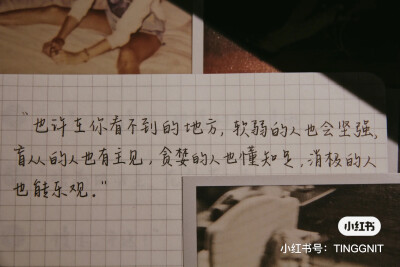 “也许在你看不到的地方，软弱的人也会坚强，
盲从的人也有主见，贪婪的人也懂知足，消极的人
也能乐观。”
小红书
小红书号：TINGGNIT